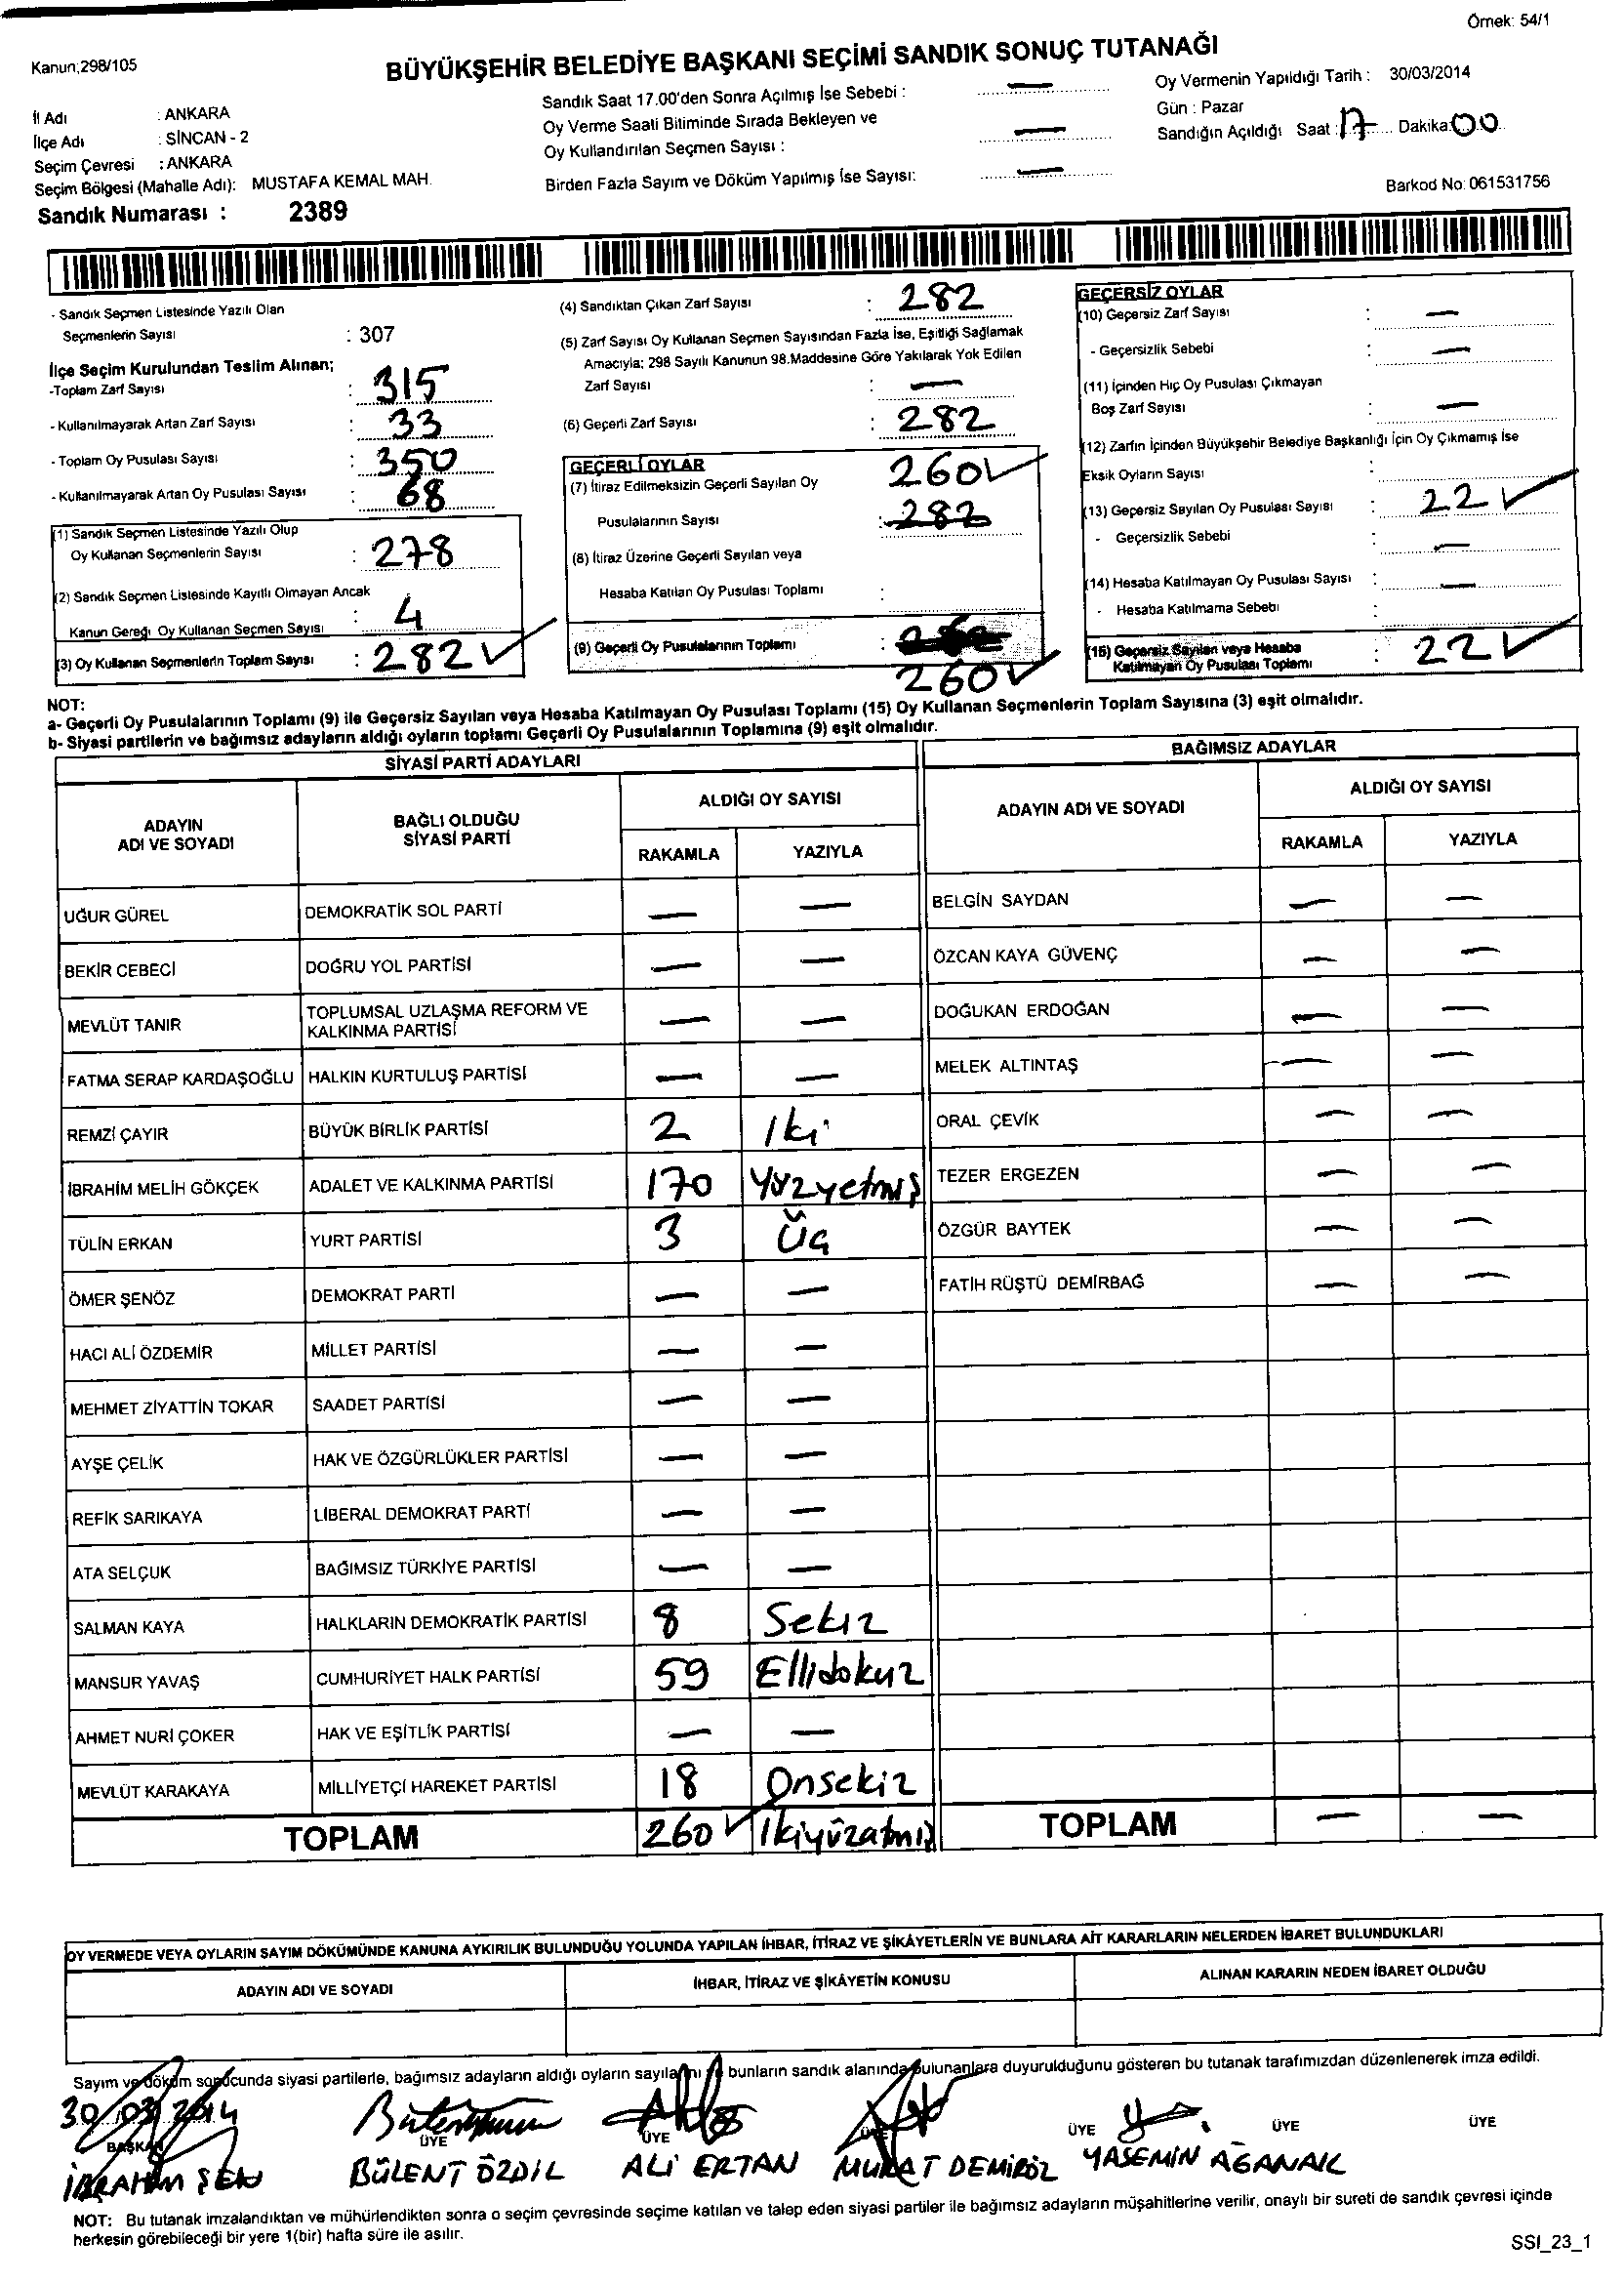 Örnek: 54/1
Kanun;298/105
BÜYÜKŞEHİR BELEDİYE BAŞKANI SEÇİMİ SANDIK SONUÇ TUTANAĞI
İl Adı : ANKARA
İlçe Adı : SİNCAN - 2
Seçim Çevresi : ANKARA
Seçim Bölgesi (Mahalle Adı): MUSTAFA KEMAL MAH.
Sandık Numarası : 2389
Sandık Saat 17.00'den Sonra Açılmış İse Sebebi : —
Oy Verme Saati Bitiminde Sırada Bekleyen ve
Oy Kullandırılan Seçmen Sayısı : —
Birden Fazla Sayım ve Döküm Yapılmış İse Sayısı: —
Oy Vermenin Yapıldığı Tarih : 30/03/2014
Gün : Pazar
Sandığın Açıldığı Saat : 17 Dakika: 00
Barkod No: 061531756
- Sandık Seçmen Listesinde Yazılı Olan
Seçmenlerin Sayısı : 307
İlçe Seçim Kurulundan Teslim Alınan;
-Toplam Zarf Sayısı : 315
- Kullanılmayarak Artan Zarf Sayısı : 33
- Toplam Oy Pusulası Sayısı : 350
- Kullanılmayarak Artan Oy Pusulası Sayısı : 68
(1) Sandık Seçmen Listesinde Yazılı Olup
Oy Kullanan Seçmenlerin Sayısı : 278
(2) Sandık Seçmen Listesinde Kayıtlı Olmayan Ancak
Kanun Gereği Oy Kullanan Seçmen Sayısı : 4
(3) Oy Kullanan Seçmenlerin Toplam Sayısı : 282 ✓
(4) Sandıktan Çıkan Zarf Sayısı : 282
(5) Zarf Sayısı Oy Kullanan Seçmen Sayısından Fazla İse, Eşitliği Sağlamak
Amacıyla; 298 Sayılı Kanunun 98.Maddesine Göre Yakılarak Yok Edilen
Zarf Sayısı : —
(6) Geçerli Zarf Sayısı : 282
GEÇERLİ OYLAR
(7) İtiraz Edilmeksizin Geçerli Sayılan Oy 260 ✓
Pusulalarının Sayısı : 282
(8) İtiraz Üzerine Geçerli Sayılan veya
Hesaba Katılan Oy Pusulası Toplamı :
(9) Geçerli Oy Pusulalarının Toplamı :
260 ✓
GEÇERSİZ OYLAR
(10) Geçersiz Zarf Sayısı : —
- Geçersizlik Sebebi : —
(11) İçinden Hiç Oy Pusulası Çıkmayan
Boş Zarf Sayısı : —
(12) Zarfın İçinden Büyükşehir Belediye Başkanlığı İçin Oy Çıkmamış İse
Eksik Oyların Sayısı :
(13) Geçersiz Sayılan Oy Pusulası Sayısı : 22 ✓
- Geçersizlik Sebebi : —
(14) Hesaba Katılmayan Oy Pusulası Sayısı : —
- Hesaba Katılmama Sebebi :
(15) Geçersiz Sayılan veya Hesaba
Katılmayan Oy Pusulası Toplamı : 22 ✓
NOT:
a- Geçerli Oy Pusulalarının Toplamı (9) ile Geçersiz Sayılan veya Hesaba Katılmayan Oy Pusulası Toplamı (15) Oy Kullanan Seçmenlerin Toplam Sayısına (3) eşit olmalıdır.
b- Siyasi partilerin ve bağımsız adayların aldığı oyların toplamı Geçerli Oy Pusulalarının Toplamına (9) eşit olmalıdır.
SİYASİ PARTİ ADAYLARI
ADAYIN ADI VE SOYADI BAĞLI OLDUĞU SİYASİ PARTİ ALDIĞI OY SAYISI
RAKAMLA YAZIYLA
UĞUR GÜREL DEMOKRATİK SOL PARTİ — —
BEKİR CEBECİ DOĞRU YOL PARTİSİ — —
MEVLÜT TANIR TOPLUMSAL UZLAŞMA REFORM VE KALKINMA PARTİSİ — —
FATMA SERAP KARDAŞOĞLU HALKIN KURTULUŞ PARTİSİ — —
REMZİ ÇAYIR BÜYÜK BİRLİK PARTİSİ 2 İki
İBRAHİM MELİH GÖKÇEK ADALET VE KALKINMA PARTİSİ 170 Yüzyetmiş
TÜLİN ERKAN YURT PARTİSİ 3 Üç
ÖMER ŞENÖZ DEMOKRAT PARTİ — —
HACI ALİ ÖZDEMİR MİLLET PARTİSİ — —
MEHMET ZİYATTİN TOKAR SAADET PARTİSİ — —
AYŞE ÇELİK HAK VE ÖZGÜRLÜKLER PARTİSİ — —
REFİK SARIKAYA LİBERAL DEMOKRAT PARTİ — —
ATA SELÇUK BAĞIMSIZ TÜRKİYE PARTİSİ — —
SALMAN KAYA HALKLARIN DEMOKRATİK PARTİSİ 8 Sekiz
MANSUR YAVAŞ CUMHURİYET HALK PARTİSİ 59 Ellidokuz
AHMET NURİ ÇOKER HAK VE EŞİTLİK PARTİSİ — —
MEVLÜT KARAKAYA MİLLİYETÇİ HAREKET PARTİSİ 18 Onsekiz
TOPLAM 260 ✓ İkiyüzatmış
BAĞIMSIZ ADAYLAR
ADAYIN ADI VE SOYADI ALDIĞI OY SAYISI
RAKAMLA YAZIYLA
BELGİN SAYDAN — —
ÖZCAN KAYA GÜVENÇ — —
DOĞUKAN ERDOĞAN — —
MELEK ALTINTAŞ — —
ORAL ÇEVİK — —
TEZER ERGEZEN — —
ÖZGÜR BAYTEK — —
FATİH RÜŞTÜ DEMİRBAĞ — —
TOPLAM — —
OY VERMEDE VEYA OYLARIN SAYIM DÖKÜMÜNDE KANUNA AYKIRILIK BULUNDUĞU YOLUNDA YAPILAN İHBAR, İTİRAZ VE ŞİKÂYETLERİN VE BUNLARA AİT KARARLARIN NELERDEN İBARET BULUNDUKLARI
ADAYIN ADI VE SOYADI İHBAR, İTİRAZ VE ŞİKÂYETİN KONUSU ALINAN KARARIN NEDEN İBARET OLDUĞU
Sayım ve döküm sonucunda siyasi partilerle, bağımsız adayların aldığı oyların sayılarını ve bunların sandık alanında bulunanlara duyurulduğunu gösteren bu tutanak tarafımızdan düzenlenerek imza edildi.
30/03/2014
BAŞKAN ÜYE ÜYE ÜYE ÜYE ÜYE ÜYE
İBRAHİM ŞEN BÜLENT ÖZDİL ALİ ERTAN MURAT DEMİRÖZ YASEMİN AĞANAK
NOT: Bu tutanak imzalandıktan ve mühürlendikten sonra o seçim çevresinde seçime katılan ve talep eden siyasi partiler ile bağımsız adayların müşahitlerine verilir, onaylı bir sureti de sandık çevresi içinde
herkesin görebileceği bir yere 1(bir) hafta süre ile asılır.
SSI_23_1